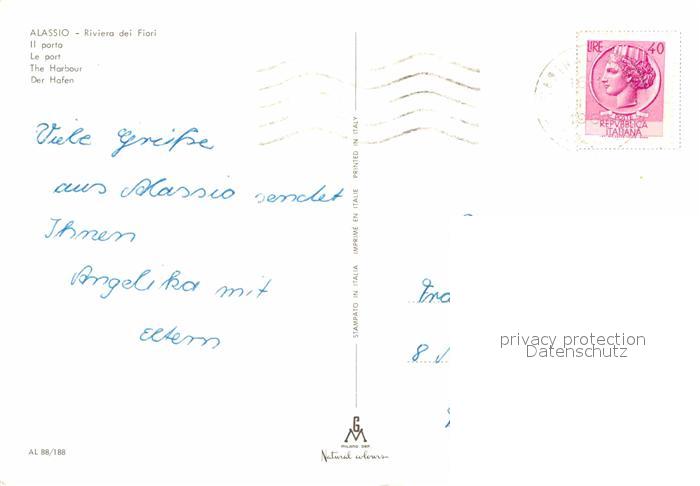 ALASSIO - Riviera dei Fiori
Il porto
Le port
The Harbour
Der Hafen
Viele Grüße
aus Alassio sendet
Ihnen
Angelika mit
Eltern
AL 88/188
STAMPATO IN ITALIA IMPRIMÉ EN ITALIE PRINTED IN ITALY
GM
MILANO DEP.
Natural colours
LIRE 40
POSTE
REPVBBLICA
ITALIANA
Fra
8
privacy protection
Datenschutz